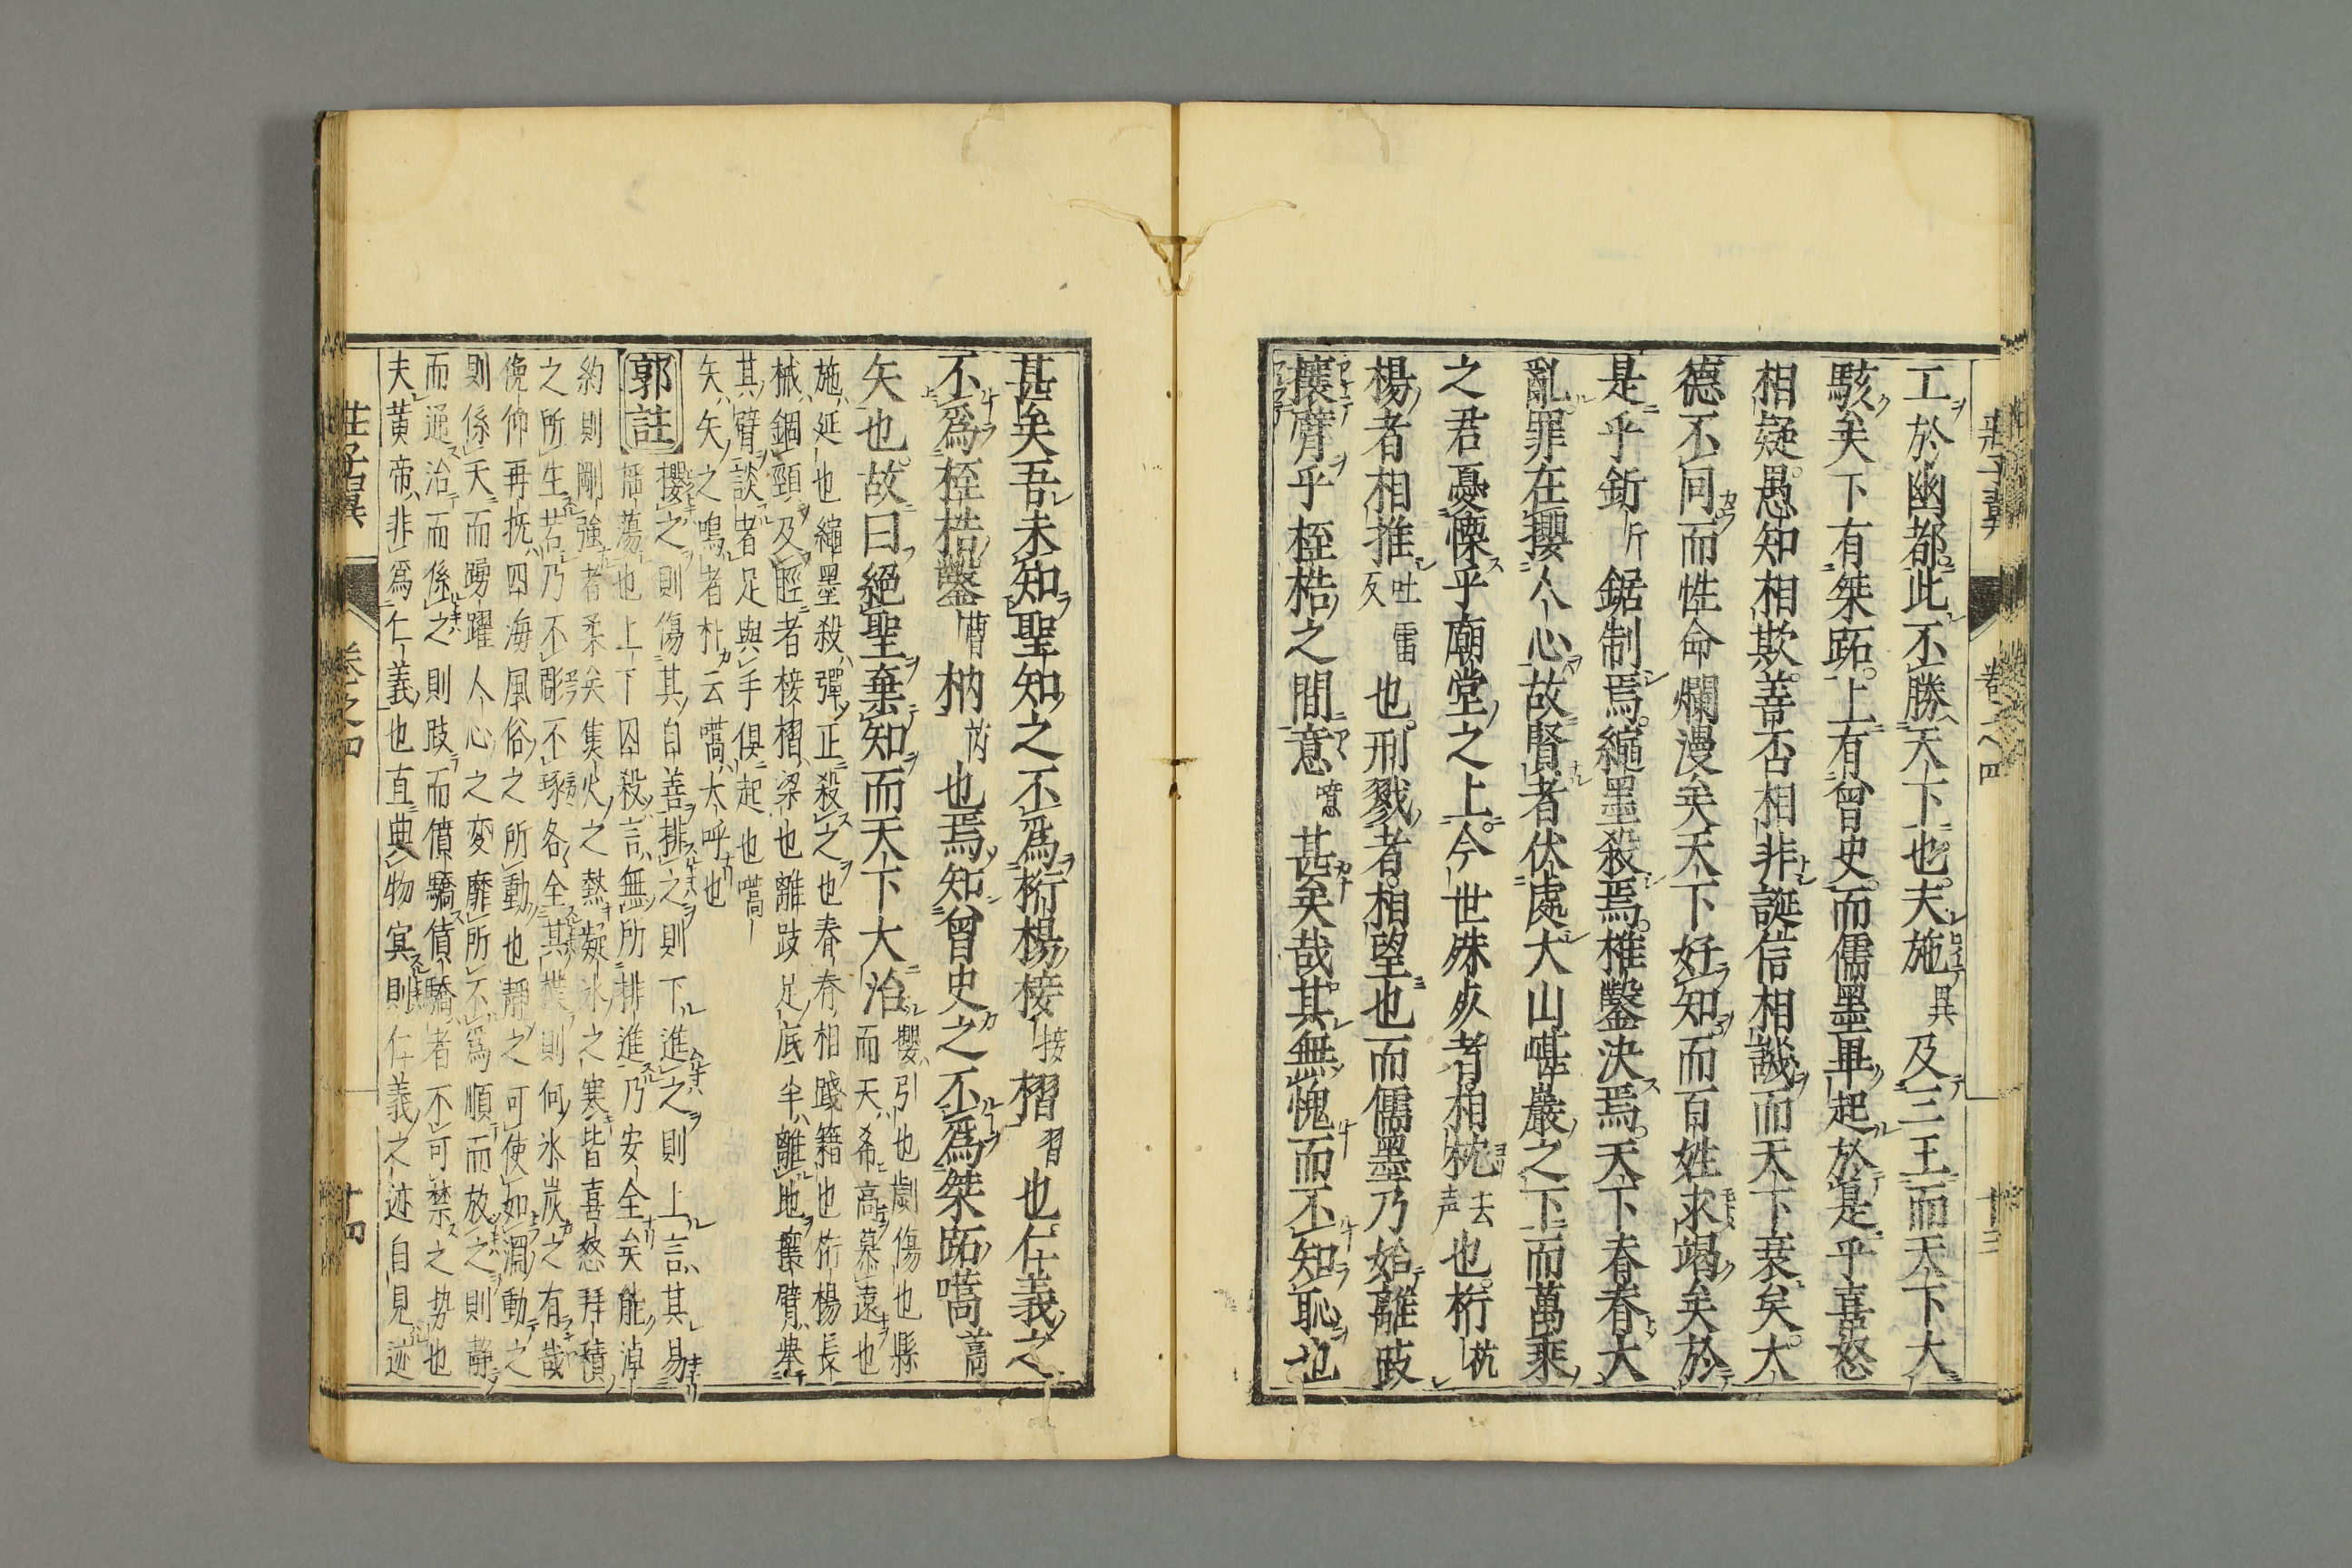 莊子翼 卷之四 十三
工於幽都此不勝天下也夫施異及三王而天下大
駭矣下有桀跖上有曾史而儒墨畢起於是乎喜怒
相疑愚知相欺善否相非誕信相譏而天下衰矣大
德不同而性命爛漫矣天下好知而百姓求竭矣於
是乎釿斤鋸制焉繩墨殺焉椎鑿決焉天下舂舂大
亂罪在攖人心故賢者伏處大山嵁巖之下而萬乘
之君憂慄乎廟堂之上今世殊死者相枕去声也桁杭
楊者相推吐雷反也刑戮者相望也而儒墨乃始離跂
攘臂乎桎梏之間意噫甚矣哉其無愧而不知恥也
甚矣吾未知聖知之不爲桁楊接接摺習也仁義之
不爲桎梏鑿曹枘芮也焉知曾史之不爲桀跖嚆蒿
矢也故曰絕聖棄知而天下大治攖引也劌傷也縣
而天希高慕遠也
施延也繩墨殺彈正殺之也舂舂相踐籍也桁楊長
械鋼頸及脛者椄摺梁也離跂足底半離地攘臂舉
其臂談者足與手俱起也嚆
矢矢之鳴者朴云嚆大呼也
郭註 攖之則傷其自善排之則下進之則上言其易
搖蕩也上下囚殺言無所排進乃安全矣能淖
約則剛強者柔矣焦火之熱凝冰之寒皆喜怒拜積
之所生若乃不彫不琢各全其樸則何冰炭之有哉
俛仰再抚四海風俗之所動也靜之可使如淵動之
則係天而踴躍人心之変靡所不爲順而放之則靜
而通治而係之則跂而僨驕僨驕者不可禁之勢也
夫黃帝非爲仁義也直與物冥則仁義之迹自見迹
莊子翼 卷之四 十四